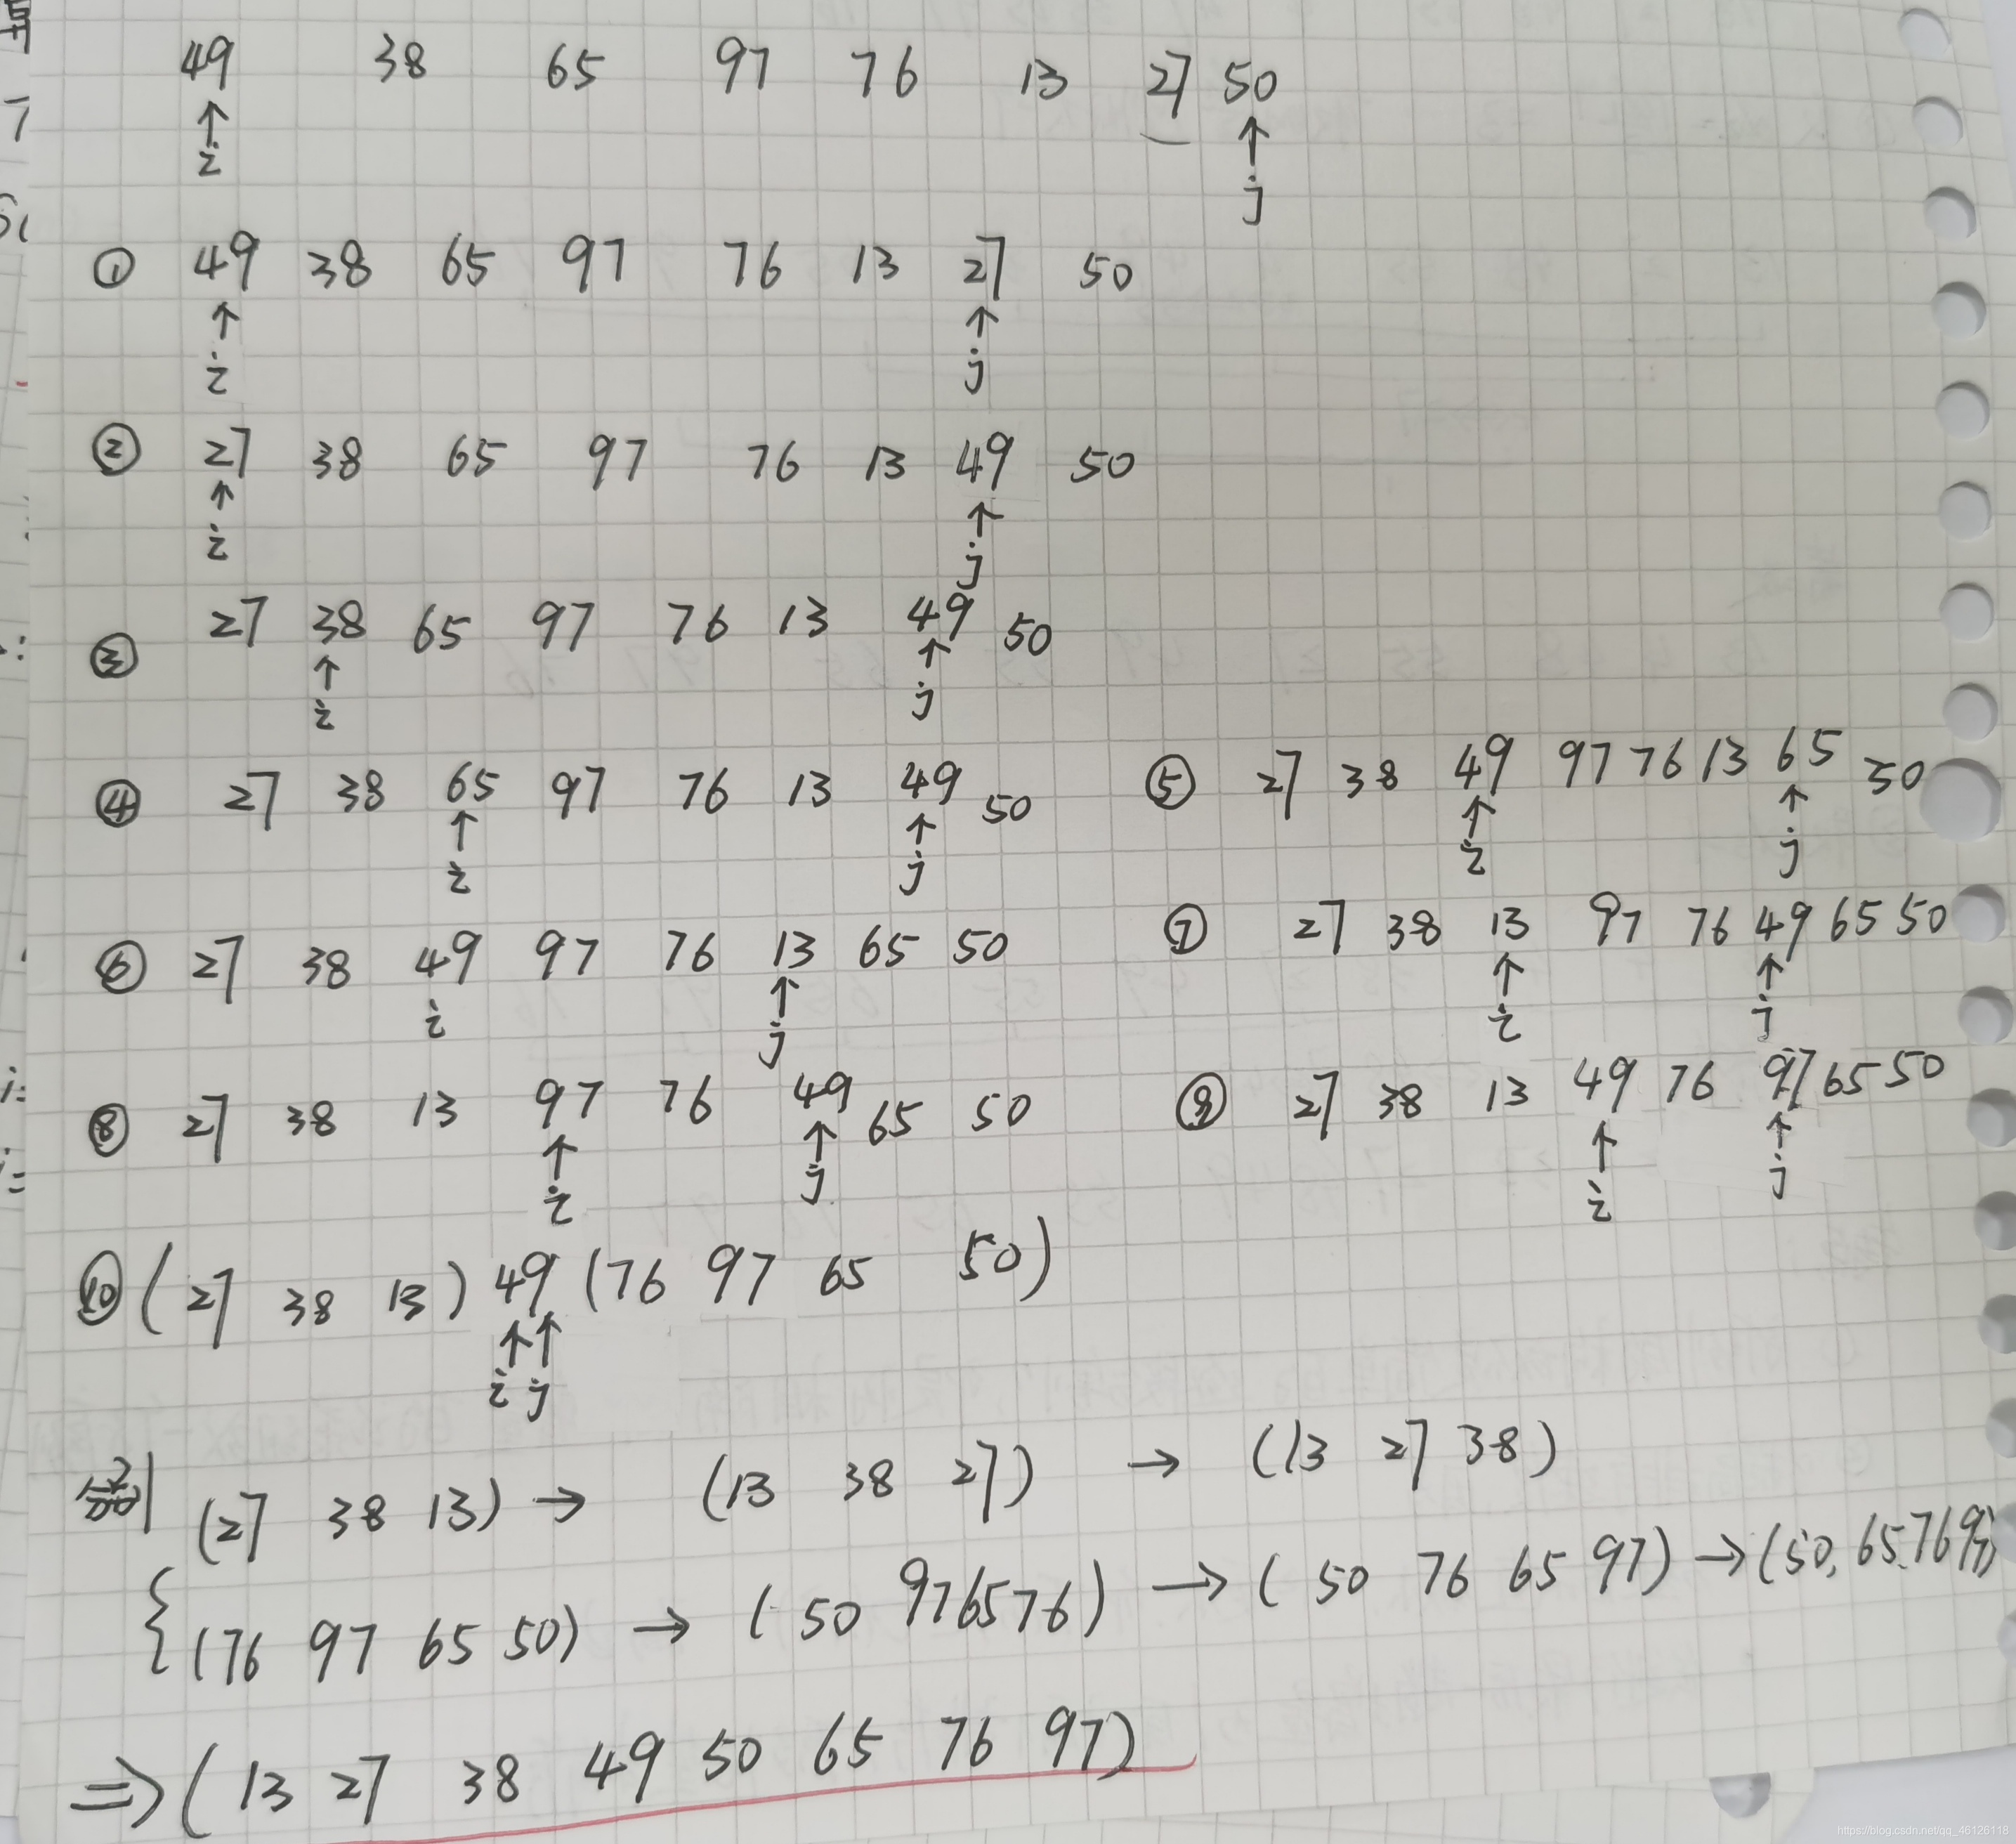 49 38 65 97 76 13 27 50
↑ ↑
i j
① 49 38 65 97 76 13 27 50
↑ ↑
i j
② 27 38 65 97 76 13 49 50
↑ ↑
i j
③ 27 38 65 97 76 13 49 50
↑ ↑
i j
④ 27 38 65 97 76 13 49 50
↑ ↑
i j
⑤ 27 38 49 97 76 13 65 50
↑ ↑
i j
⑥ 27 38 49 97 76 13 65 50
↑
i j
⑦ 27 38 13 97 76 49 65 50
↑ ↑
i j
⑧ 27 38 13 97 76 49 65 50
↑ ↑
i j
⑨ 27 38 13 49 76 97 65 50
↑ ↑
i j
⑩ (27 38 13) 49 (76 97 65 50)
↑↑
i j
(27 38 13) → (13 38 27) → (13 27 38)
{(76 97 65 50) → (50 97 65 76) → (50 76 65 97) → (50, 65 76 97)
⇒ (13 27 38 49 50 65 76 97)
https://blog.csdn.net/qq_46126118